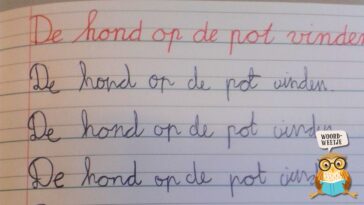 De hond op de pot vinden
De hond op de pot vinden.
De hond op de pot vinden
De hond op de pot
WOORD-
WEETJE